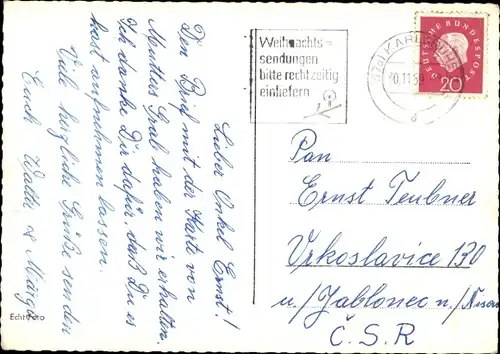 Weihnachts=
sendungen
bitte rechtzeitig
einliefern
KARLSRUHE
DEUTSCHE BUNDESPOST
20
Lieber Onkel Ernst!
Den Brief mit der Karte von
Muttles Grab haben wir erhalten.
Ich danke Dir dafür, daß Du es
hast aufnehmen lassen.
Viele herzliche Grüße senden
Euch Walter &
Echt Foto
Pan
Ernst Teubner
Vrkoslavice 130
u/Jablonec n/Nisou
Č.S.R